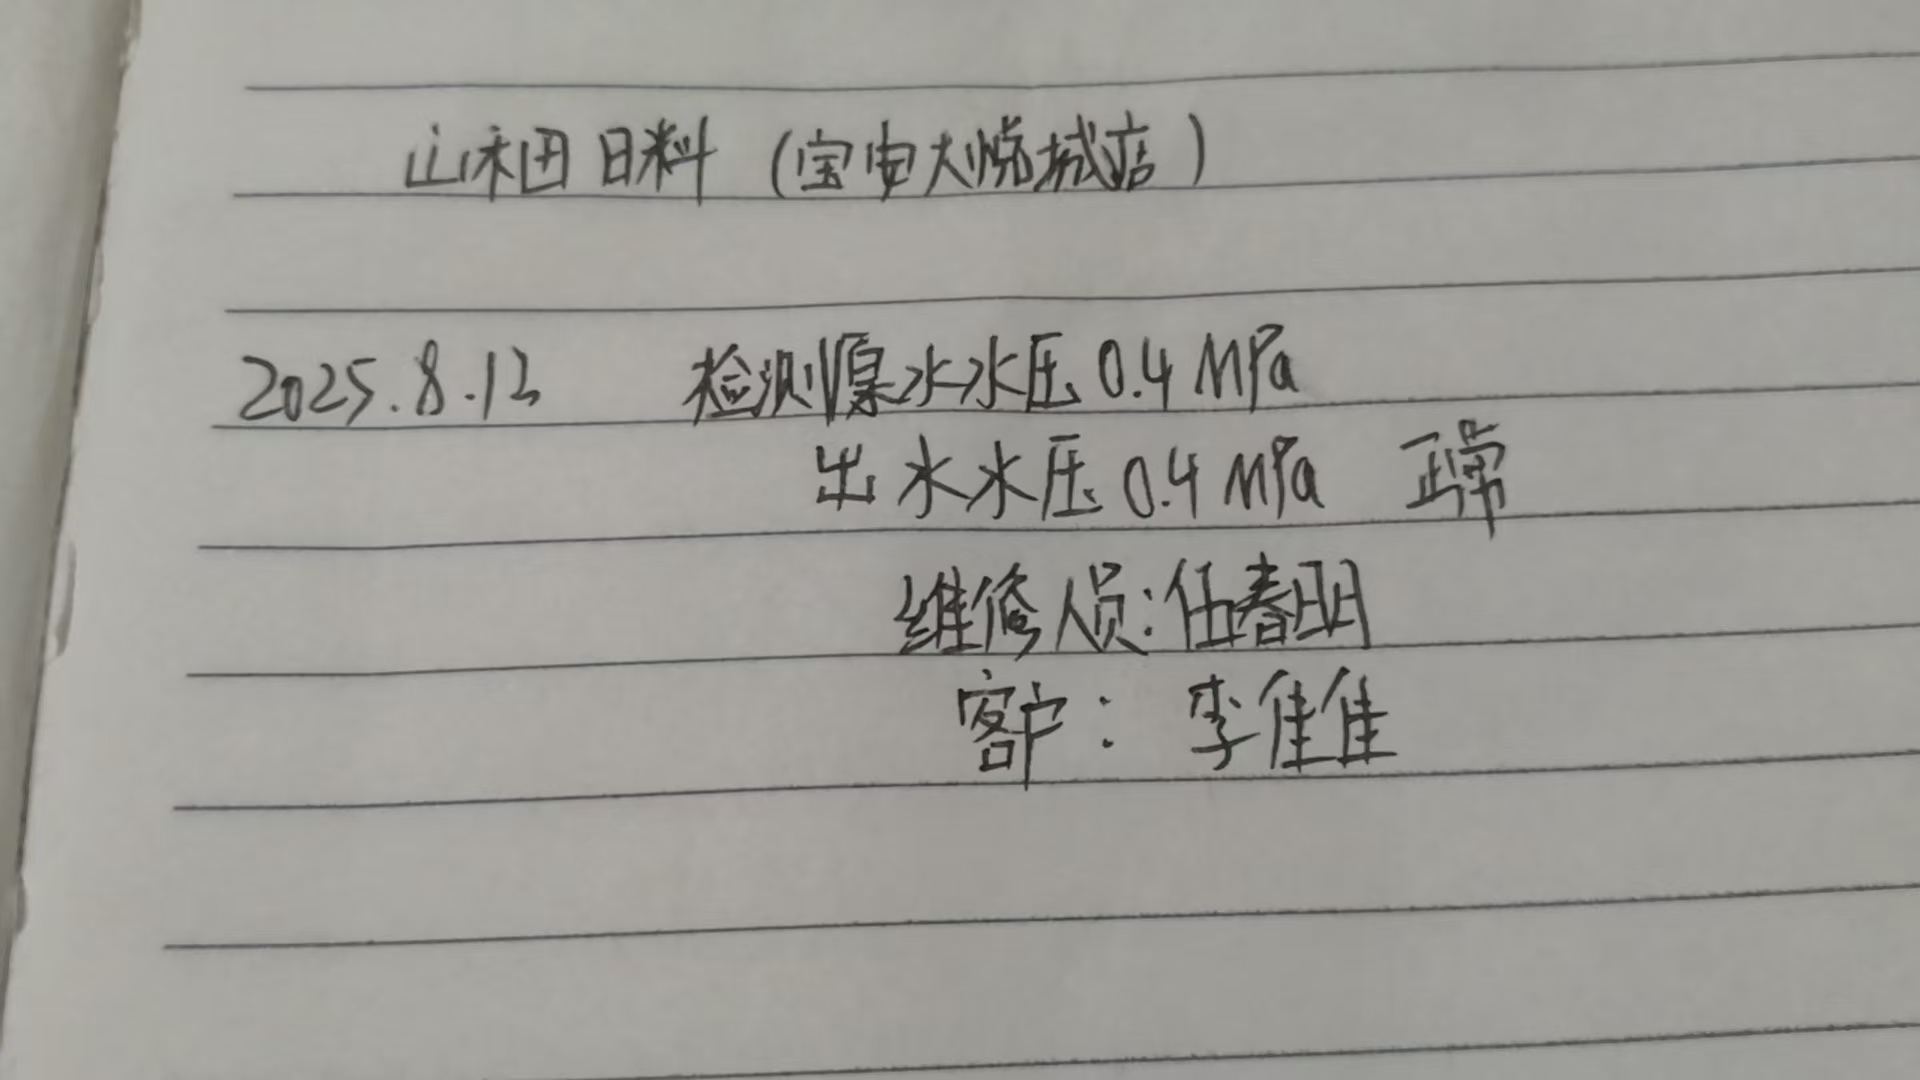 山禾田日料（宝安大悦城店）
2025.8.12 检测源水水压0.4MPa
出水水压0.4MPa 正常
维修人员：伍春明
客户：李佳佳